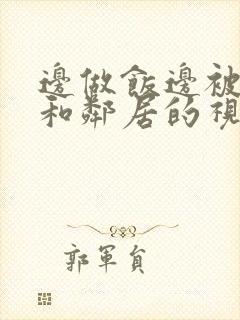 邊做飯邊被
和鄰居的視
郭軍負